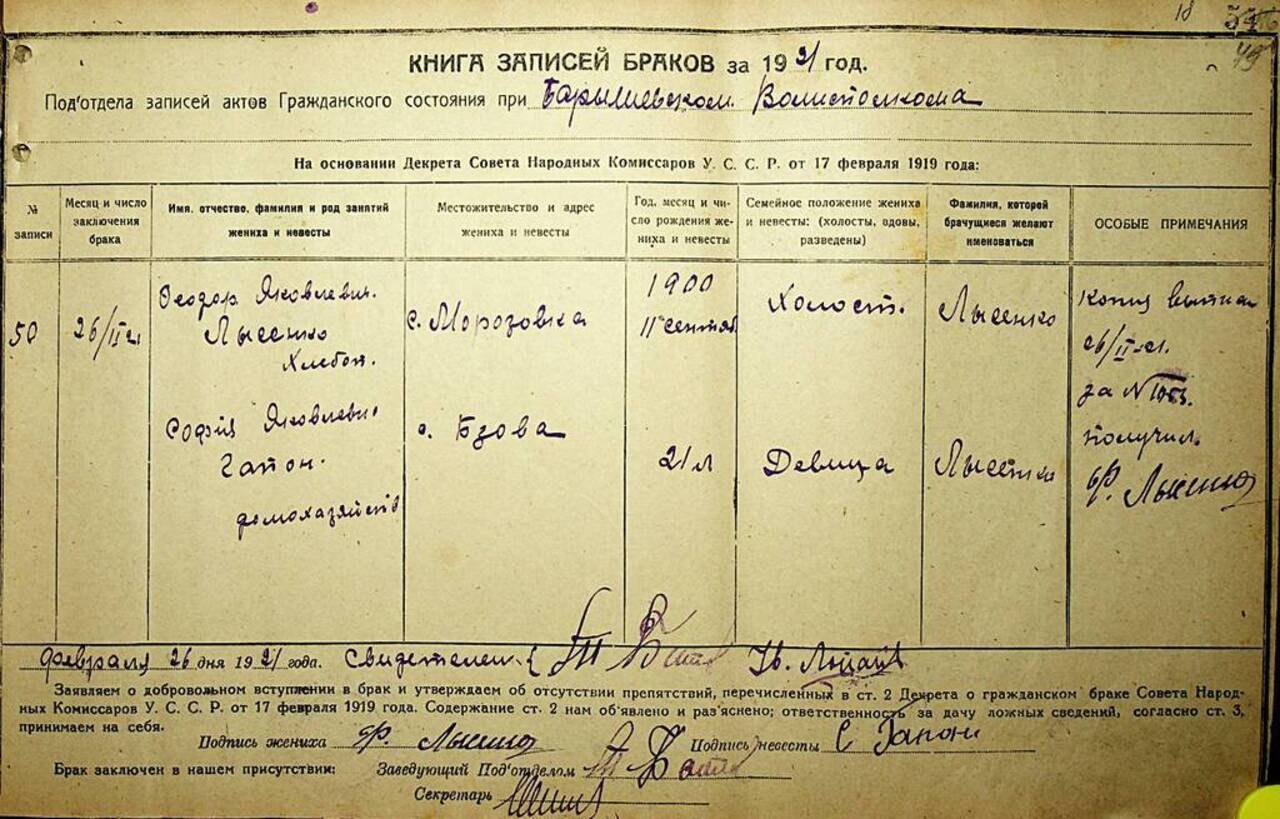 18 54
49
КНИГА ЗАПИСЕЙ БРАКОВ за 1921 год.
Под'отдела записей актов Гражданского состояния при Барышевском Волисполкома
На основании Декрета Совета Народных Комиссаров У. С. С. Р. от 17 февраля 1919 года:
№ записи
Месяц и число заключения брака
Имя, отчество, фамилия и род занятий жениха и невесты
Местожительство и адрес жениха и невесты
Год, месяц и число рождения жениха и невесты
Семейное положение жениха и невесты: (холосты, вдовы, разведены)
Фамилия, которой брачущиеся желают именоваться
ОСОБЫЕ ПРИМЕЧАНИЯ
50
26/II 21
Феодор Яковлевич.
Лысенко
Хлебоп.
с. Морозовка
1900
11 сентяб
Холост.
Лысенко
Копия выписи
26/II-21.
за №
получил.
Ф. Лысенко
София Яковлевн
Гапон.
домохазяйств
с. Бзова
21 л
Девица
Лысенко
февраля 26 дня 1921 года. Свидетелем
Заявляем о добровольном вступлении в брак и утверждаем об отсутствии препятствий, перечисленных в ст. 2 Декрета о гражданском браке Совета Народ-
ных Комиссаров У. С. С. Р. от 17 февраля 1919 года. Содержание ст. 2 нам об'явлено и раз'яснено; ответственность за дачу ложных сведений, согласно ст. 3,
принимаем на себя.
Подпись жениха Ф. Лысенко Подпись невесты С Гапон
Брак заключен в нашем присутствии: Заведующий Под'отделом
Секретарь